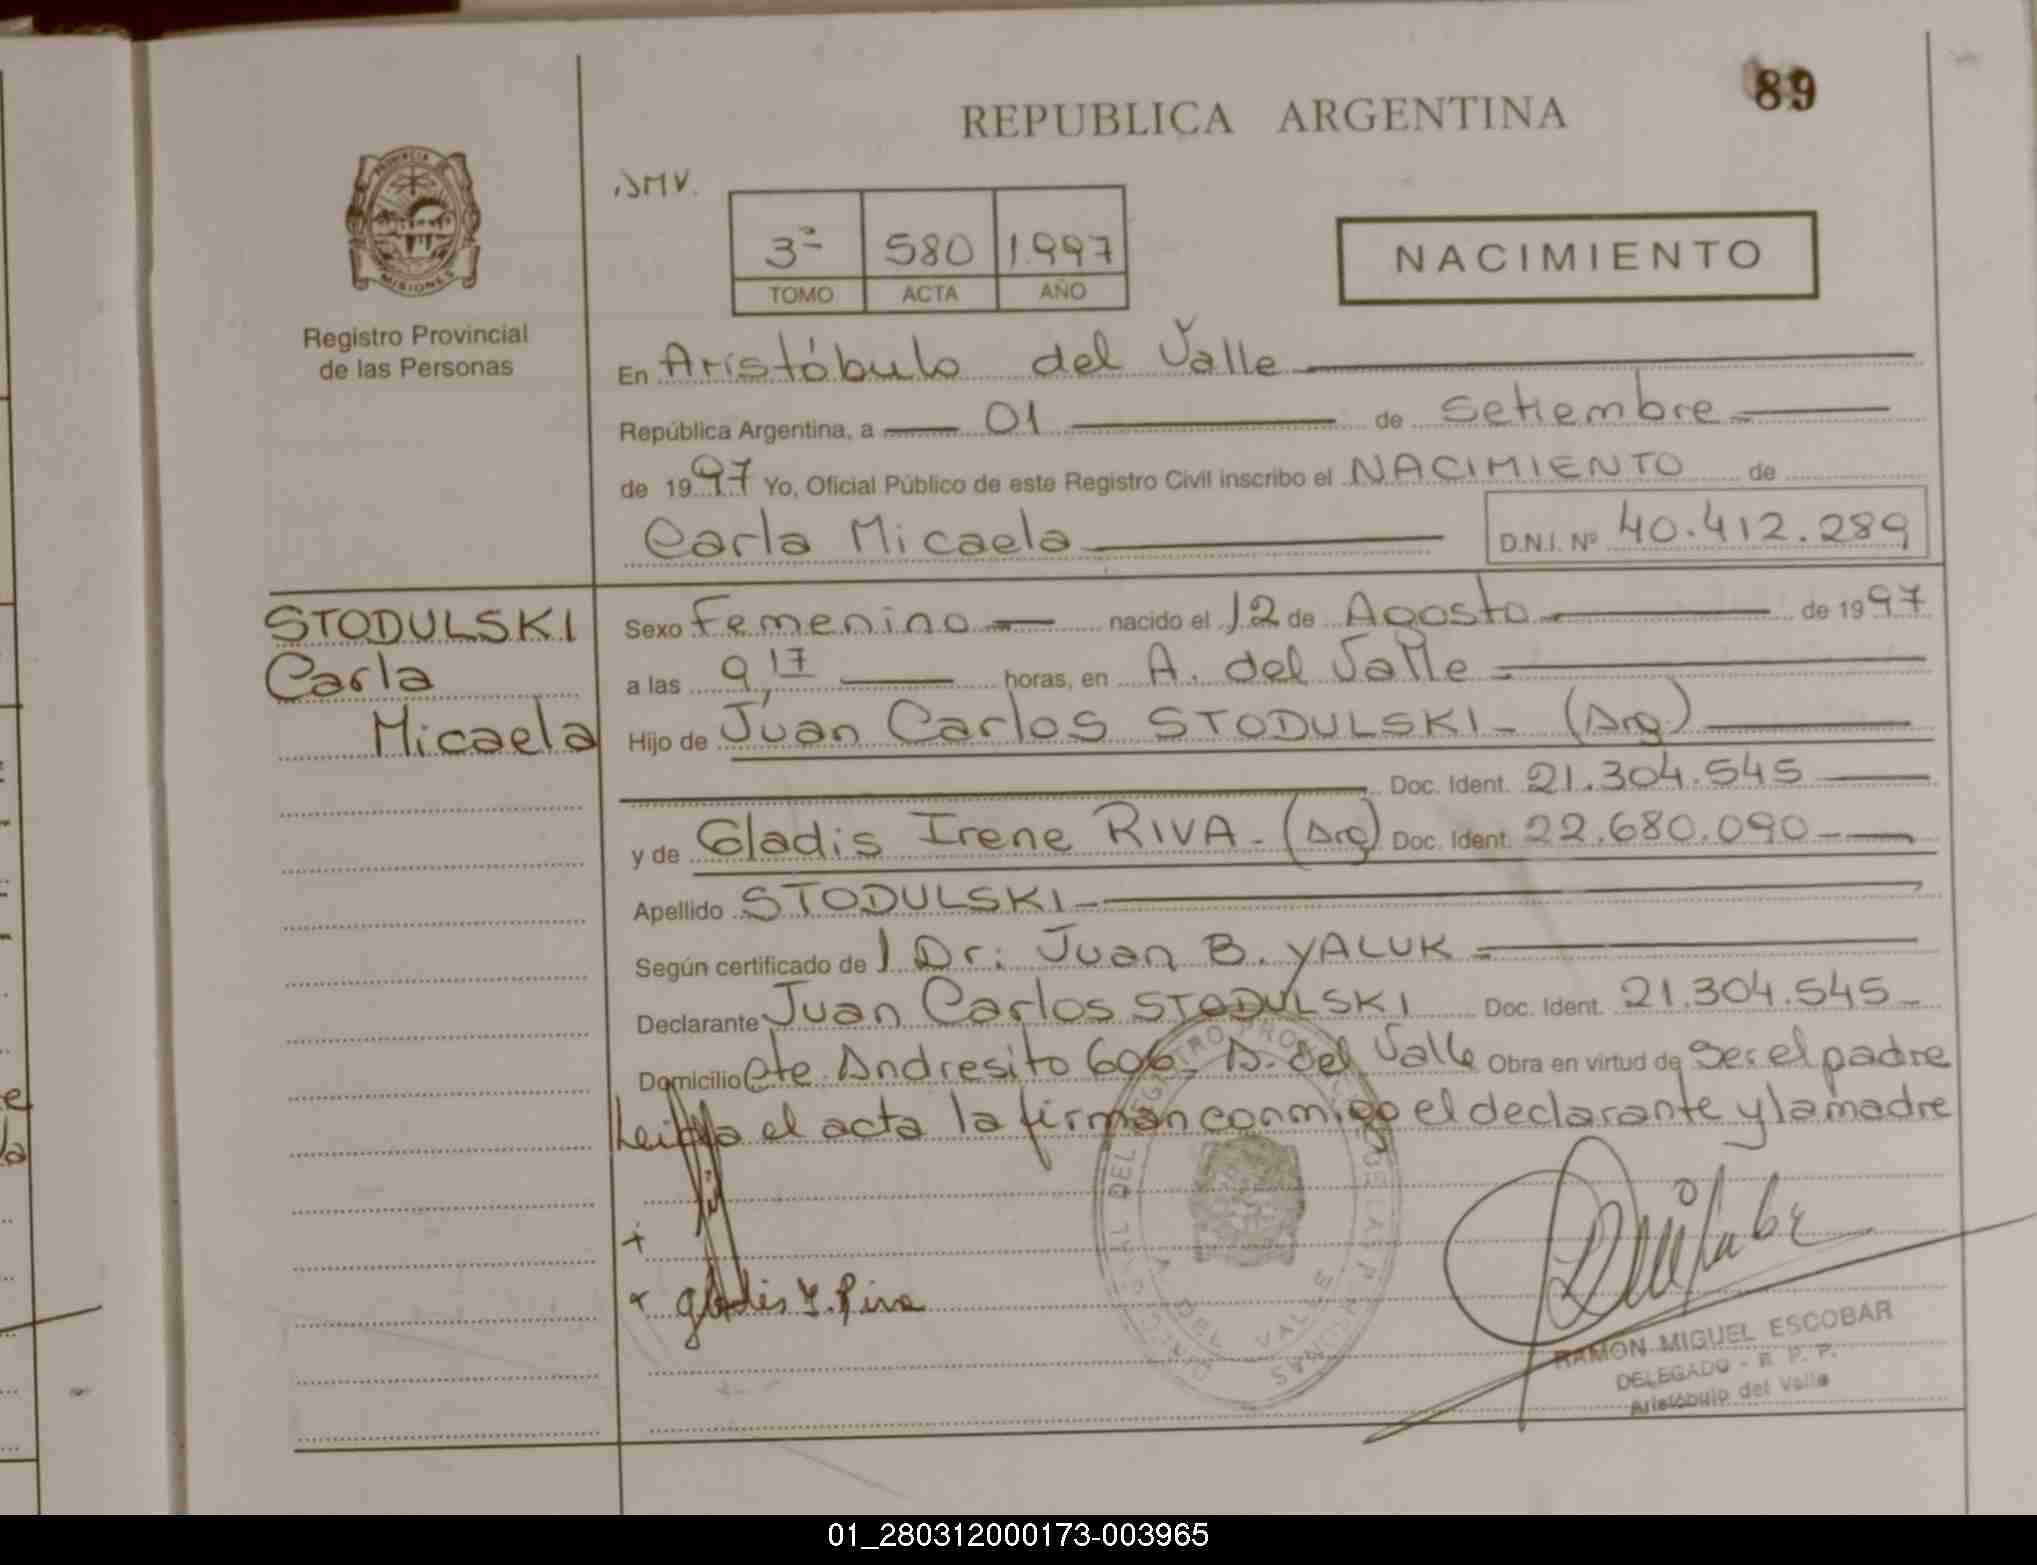 89
REPUBLICA ARGENTINA
PROVINCIA DE MISIONES
Registro Provincial
de las Personas
3ª 580 1.997
TOMO ACTA AÑO
NACIMIENTO
En Aristóbulo del Valle
República Argentina, a 01 de setiembre
de 1997 Yo, Oficial Público de este Registro Civil inscribo el NACIMIENTO de
Carla Micaela D.N.I. Nº 40.412.289
STODULSKI
Carla
Micaela
Sexo Femenino nacido el 12 de Agosto de 1997
a las 9,17 horas, en A. del Valle
Hijo de Juan Carlos STODULSKI - (Arg)
Doc. Ident. 21.304.545
y de Gladis Irene RIVA - (Arg) Doc. Ident. 22.680.090
Apellido STODULSKI
Según certificado de l Dr: Juan B. YALUK
Declarante Juan Carlos STODULSKI Doc. Ident. 21.304.545
Domicilio Cte Andresito 606 - A. del Valle Obra en virtud de ser el padre
Leida el acta la firman conmigo el declarante y la madre
+
x gladis I. Riva
RAMON MIGUEL ESCOBAR
DELEGADO - R. P. P.
Aristóbulo del Valle
01_280312000173-003965